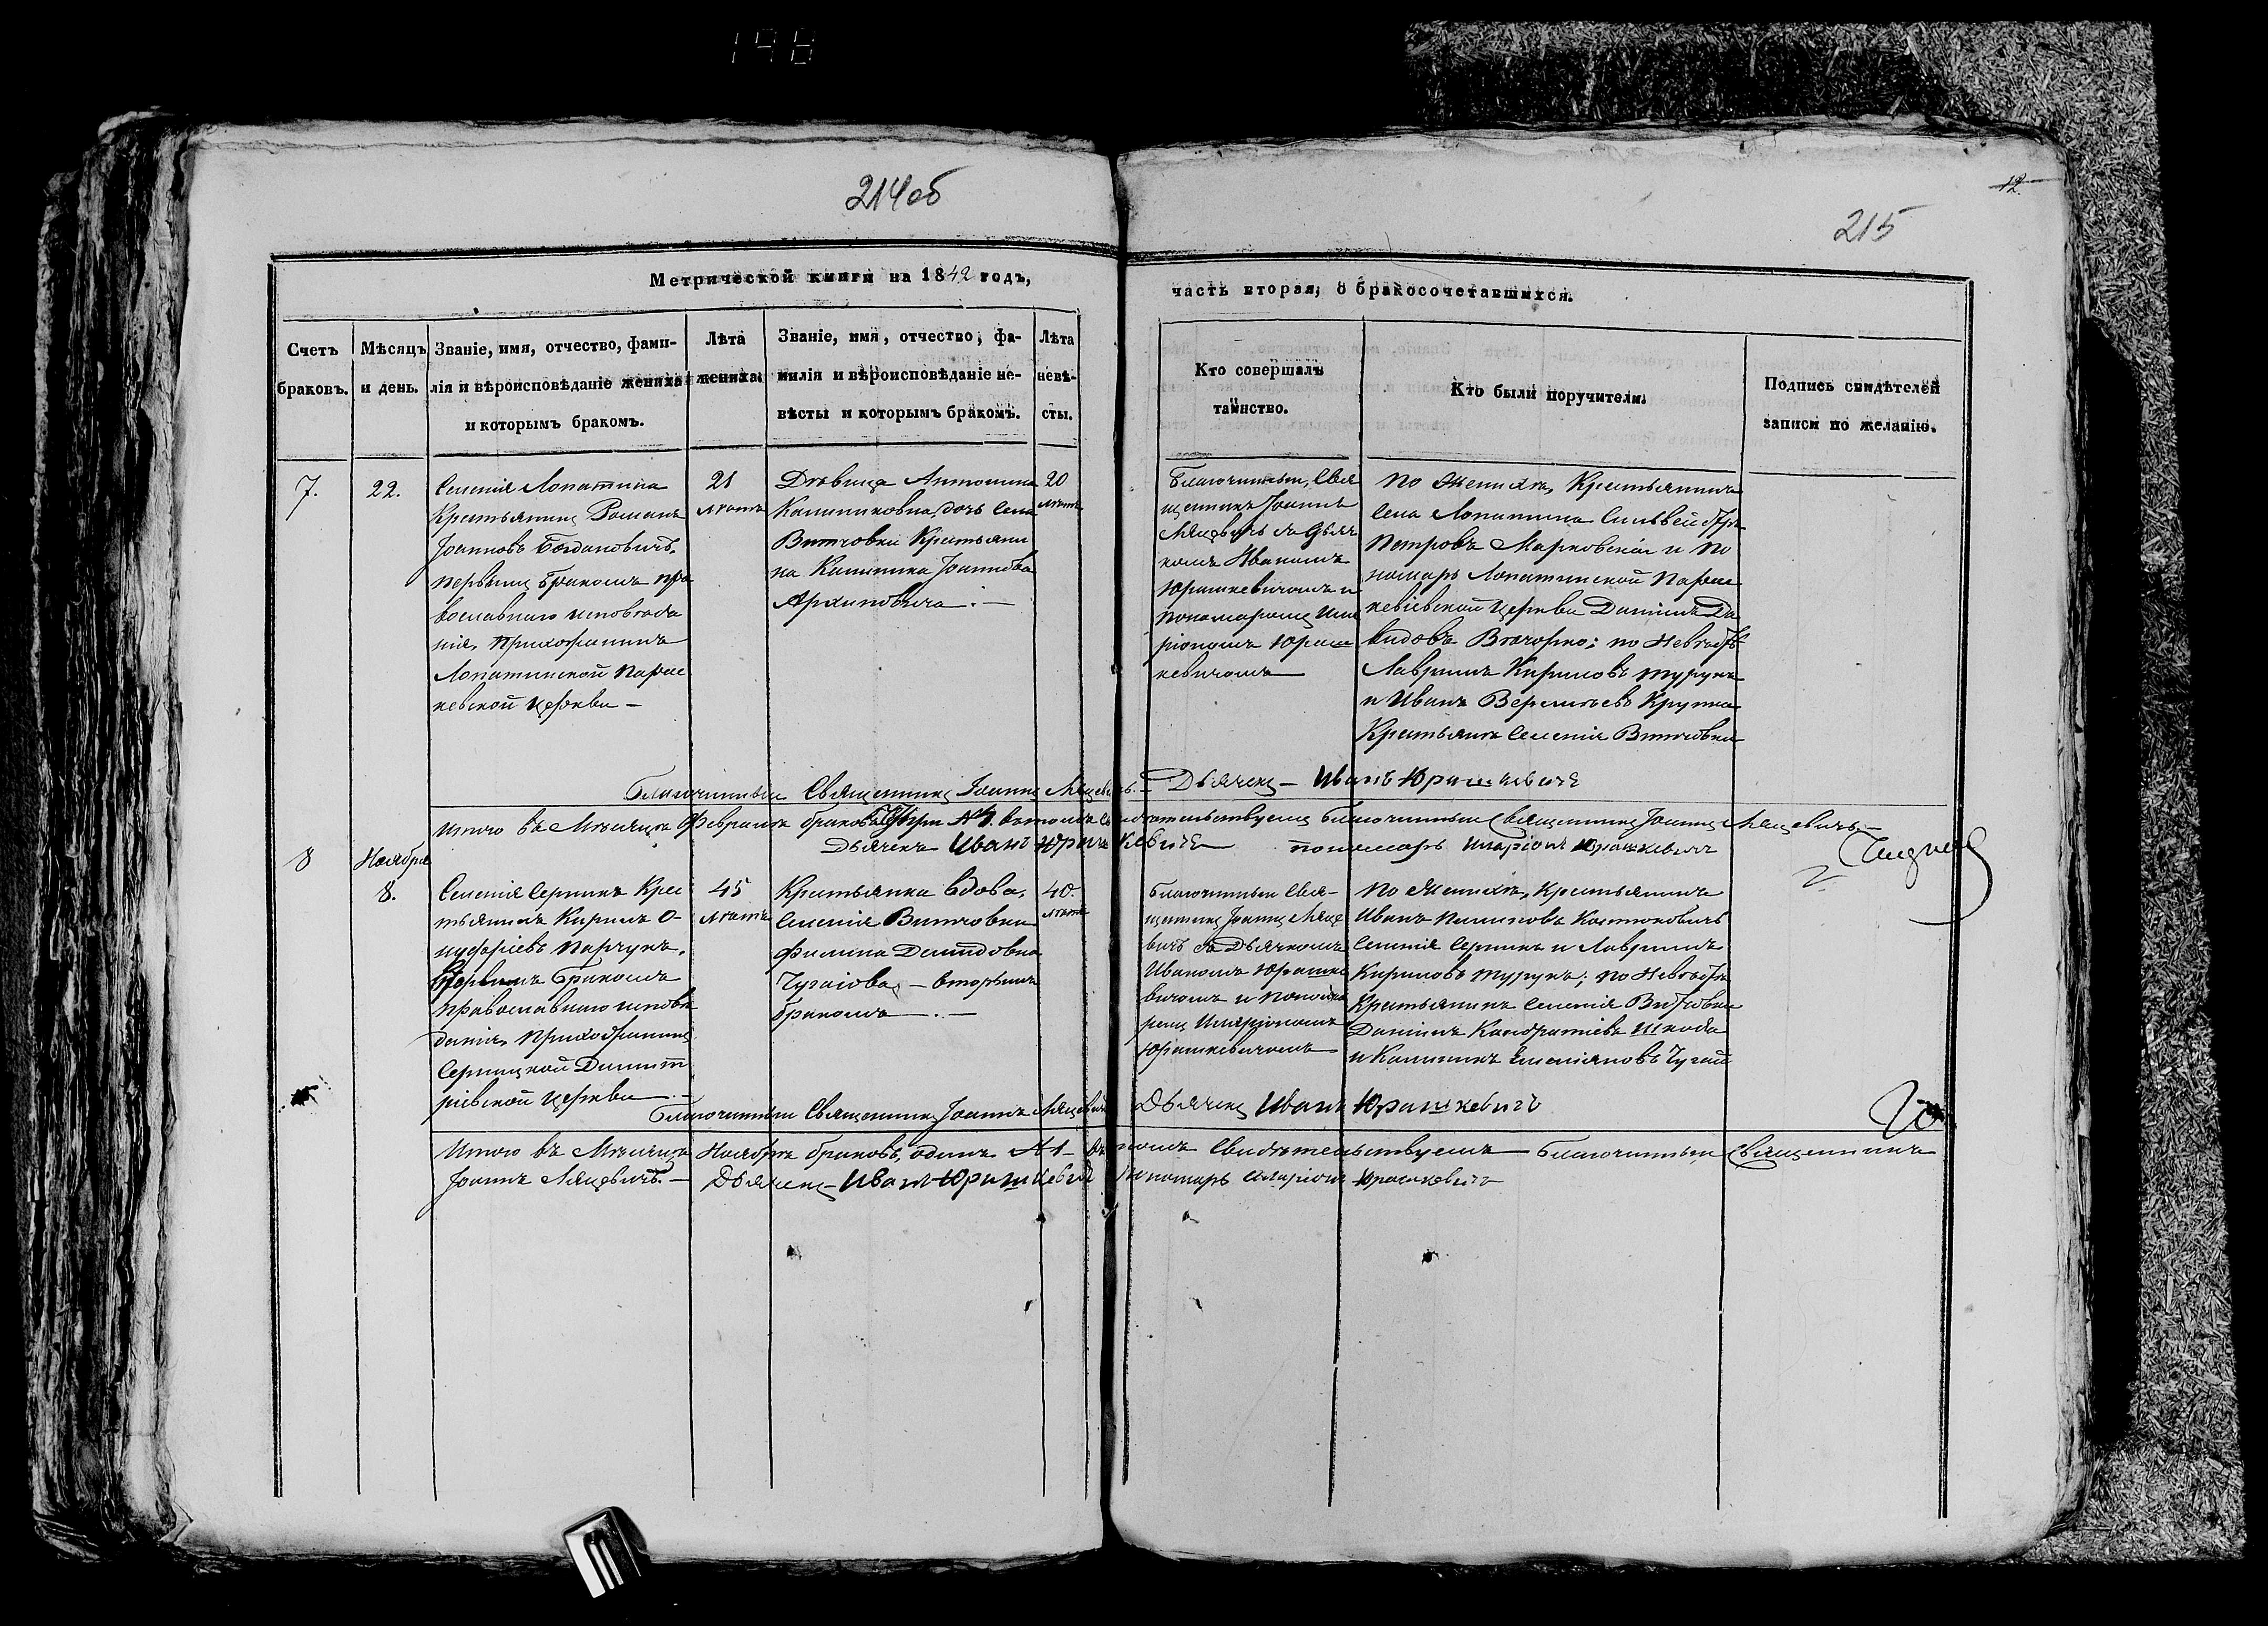 198
214об
12.
215
Метрической книги на 1842 годъ,
часть вторая, о бракосочетавшихся.
Счетъ браковъ.
Мѣсяцъ и день.
Званіе, имя, отчество, фами-
лія и вѣроисповѣданіе жениха
и которымъ бракомъ.
Лѣта
жениха.
Званіе, имя, отчество, фа-
милія и вѣроисповѣданіе не-
вѣсты и которымъ бракомъ.
Лѣта
невѣ-
сты.
Кто совершалъ
таинство.
Кто были поручители.
Подпись свидѣтелей
записи по желанію.
7.
22.
Селенія Лопатина
Крестьянинъ Романъ
Іоанновъ Богдановичъ,
первымъ бракомъ пра
вославнаго исповѣда
нія, прихожанинъ
Лопатинской Парас
кевской церкви —
21
лѣтъ
Дѣвица Антонина
Калиниковна, дочь села
Витчовки Крестьяни
на Калиника Іоаннова
Архиповича. —
20
лѣтъ
Благочинный Свя
щенникъ Іоаннъ
Мацевичъ съ дьяч
комъ Иваномъ
Юрашкевичомъ и
пономаремъ Ила
ріономъ Юраш
кевичомъ
по Женихѣ, Крестьянинъ
села Лопатина
Петровъ Марковскій и по
номарь Лопатинской Парас
кевіевской церкви Даніилъ Да
видовъ Вечорко; по Невѣстѣ
Лавринъ Кириловъ Турукъ
и Иванъ Крупка
Крестьяне селенія Витчовки
Благочинный Священникъ Іоаннъ Мацевичъ. —
Дьячекъ — Иванъ Юрашкевичъ
Итого въ Мѣсяцѣ Февралѣ браковъ три въ томъ свидѣтельствуемъ Благочинный Священникъ Іоаннъ Мацевичъ. —
Дьячекъ Иванъ Юрашкевичъ
пономарь Иларіонъ Юрашкевичъ
8
Ноября
8.
Селенія Серникъ Крес
тьянинъ Кирилъ О-
нуфріевъ Парчукъ,
вторымъ бракомъ
православнаго исповѣ
данія, прихожанинъ
Серницкой Димит
ріевской церкви. —
45
лѣтъ
Крестьянка вдова,
селенія Витчовки
Демидовна
Чугаіова, — вторымъ
бракомъ —
40.
лѣтъ
Благочинный Свя-
щенникъ Іоаннъ Маце
вичъ съ Дьячкомъ
Иваномъ Юрашке
вичомъ и понома
ремъ Иларіономъ
Юрашкевичомъ
по Женихѣ, Крестьянинъ
Иванъ Костюковичъ
селенія Серникъ и Лавринъ
Кириловъ Турукъ; по Невѣстѣ
Крестьянинъ селенія Витчовки
Даніилъ Кондратіевъ Шкода
и Калиникъ Емеліяновъ Чугай
Благочинный Священникъ Іоаннъ Мацевичъ
Дьячекъ Иванъ Юрашкевичъ
Итого въ Мѣсяцѣ Ноябрѣ браковъ, одинъ № 1 — въ томъ свидѣтельствуемъ Благочинный Священникъ
Іоаннъ Мацевичъ. — Дьячекъ Иванъ Юрашкевичъ Пономарь Иларіонъ Юрашкевичъ